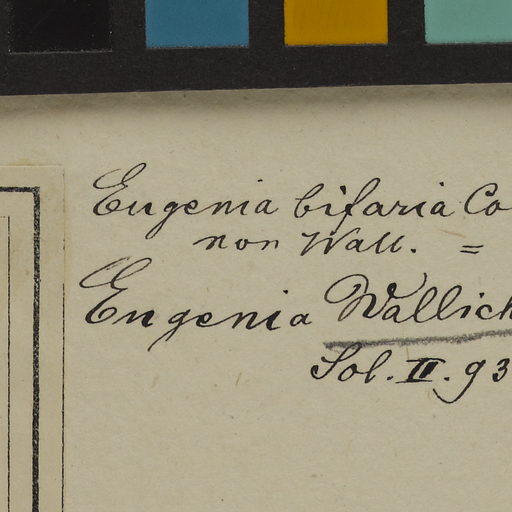 Eugenia bifaria Co
non Wall. =
Eugenia Wallich
Sol. II. 93